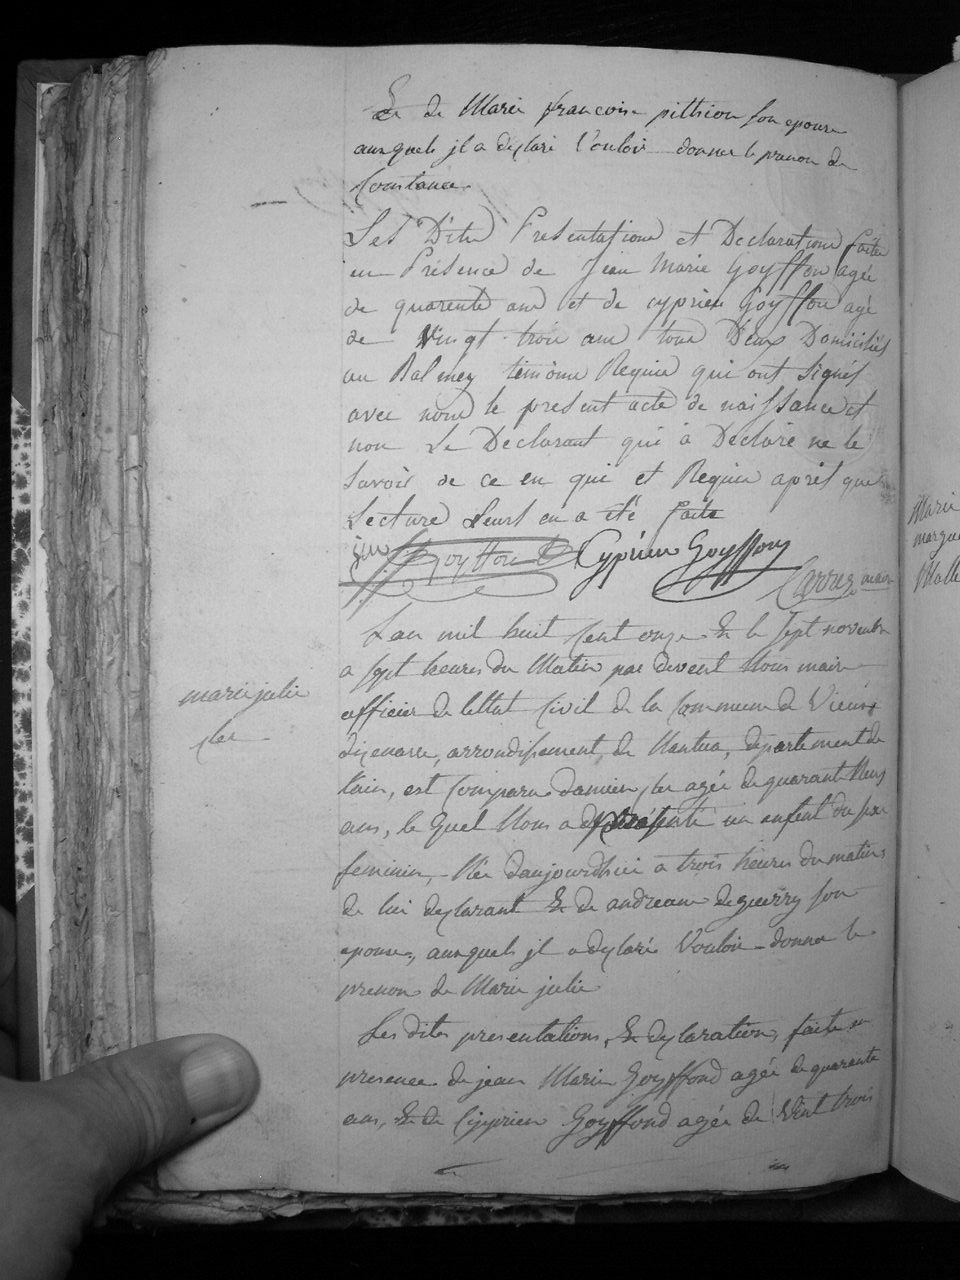 Et de Marie francoise pithion son epouse
auxquels jl a declaré Vouloir donner le prenon de
Constance.
Les Dite Presentatione et Declaratione faite
en Présence de Jean Marie Goyffon agée
de quarente ans et de cyprien Goyffon agé
de Vingt trois ans tous Deux Domiciliés
au Balmey témoins Requis qui ont signés
avec nous le present acte de naissance et
non Le Declarant qui à Declaré ne le
savoir de ce en qui et Requis aprés que
Lecture Leurs en a été faite
jm Goyffon Cyprien Goyffon
Carrez maire
Lan mil huit Cent onze & le sept novembre
a sept heures du Matin par devent Nous maire
officier de lettat Civil de la Commune de Vieux
dizenave, arrondissement, de Nantua, departement de
lain, est Comparu damien agée de quarant Neuf
ans, le quel Nous a presenté un enfent du sexe
feminin, Née daujourdhui a trois heures du matin
de lui declarant & de andreane deguerry son
epouse, auxquels jl a declaré Vouloir donner le
prenon de Marie julie
marie julie
Les dites presentations, & declarations, faite en
presence de jean Marie Goyffond agée de quarante
ans, & de Ciyprien Goyffond agée de Vint trois
Marie